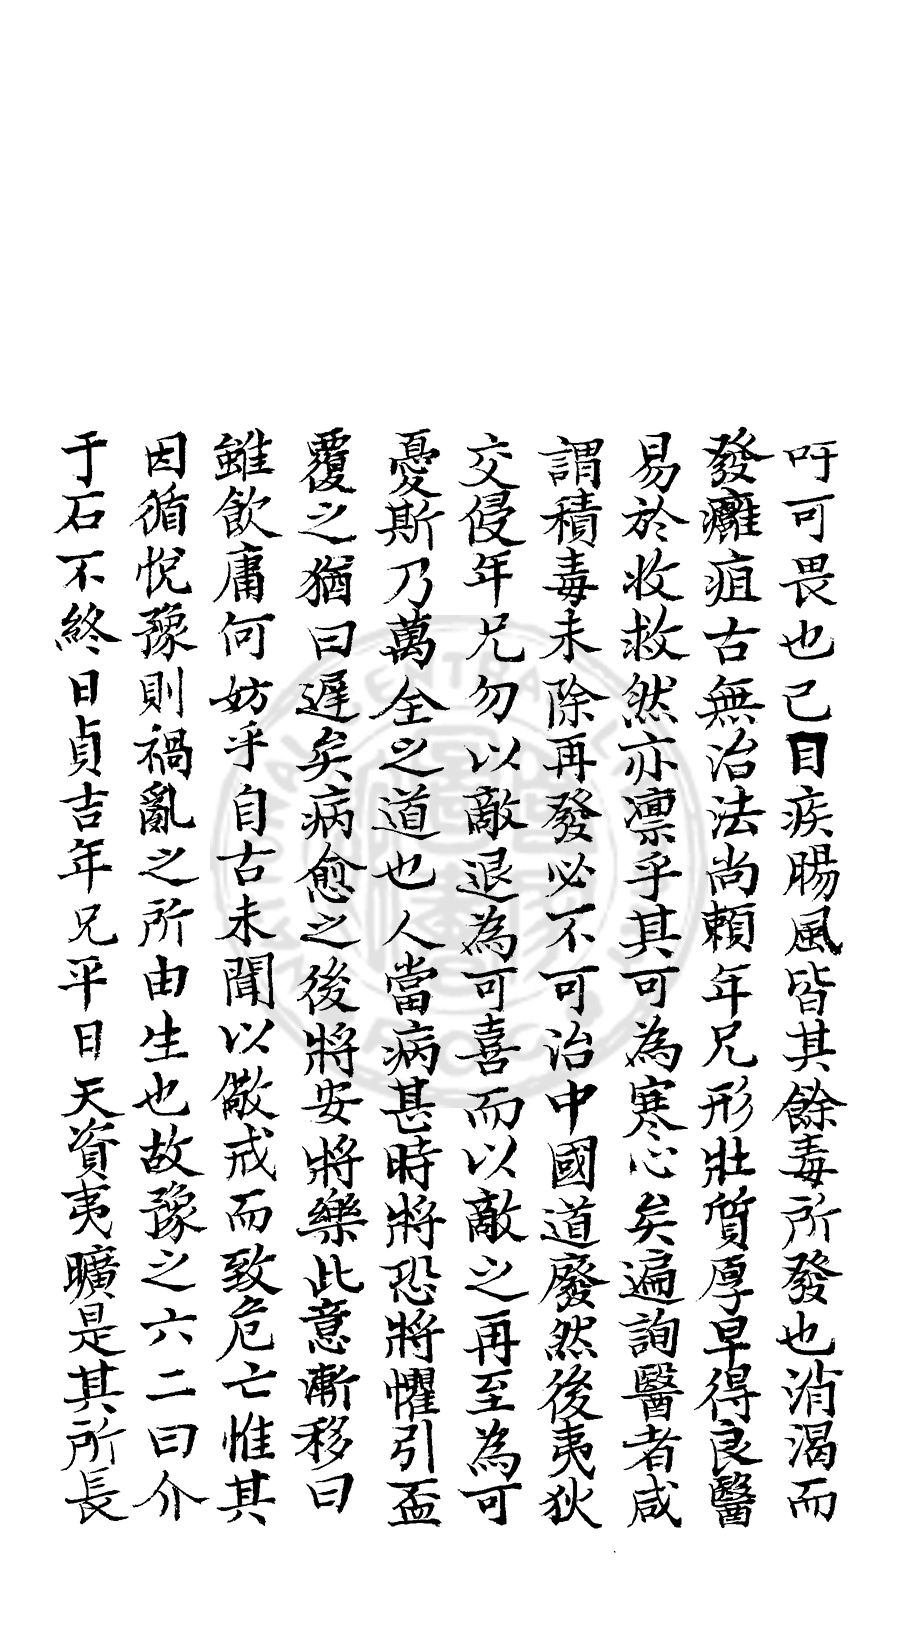 吁可畏也已目疾腸風皆其餘毒所發也消渴而
發癰疽古無治法尚賴年兄形壯質厚早得良醫
易於收救然亦凛乎其可為寒心矣遍詢醫者咸
謂積毒未除再發必不可治中國道廢然後夷狄
交侵年兄勿以敵退為可喜而以敵之再至為可
憂斯乃萬全之道也人當病甚時將恐將懼引盃
覆之猶曰遲矣病愈之後將安將樂此意漸移曰
雖飲庸何妨乎自古未聞以儆戒而致危亡惟其
因循悅豫則禍亂之所由生也故豫之六二曰介
于石不終日貞吉年兄平日天資夷曠是其所長